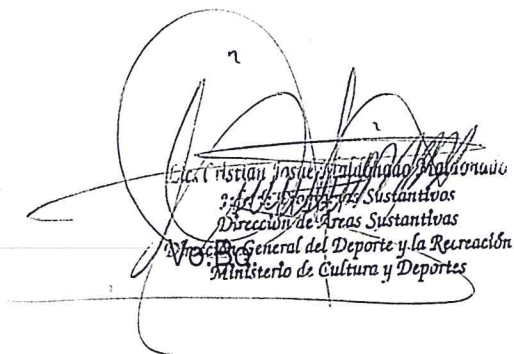 Lic. Cristian Josue Maldonado Maldonado
Sustantivos
Dirección de Areas Sustantivas
Vo.Bo. General del Deporte y la Recreación
Ministerio de Cultura y Deportes